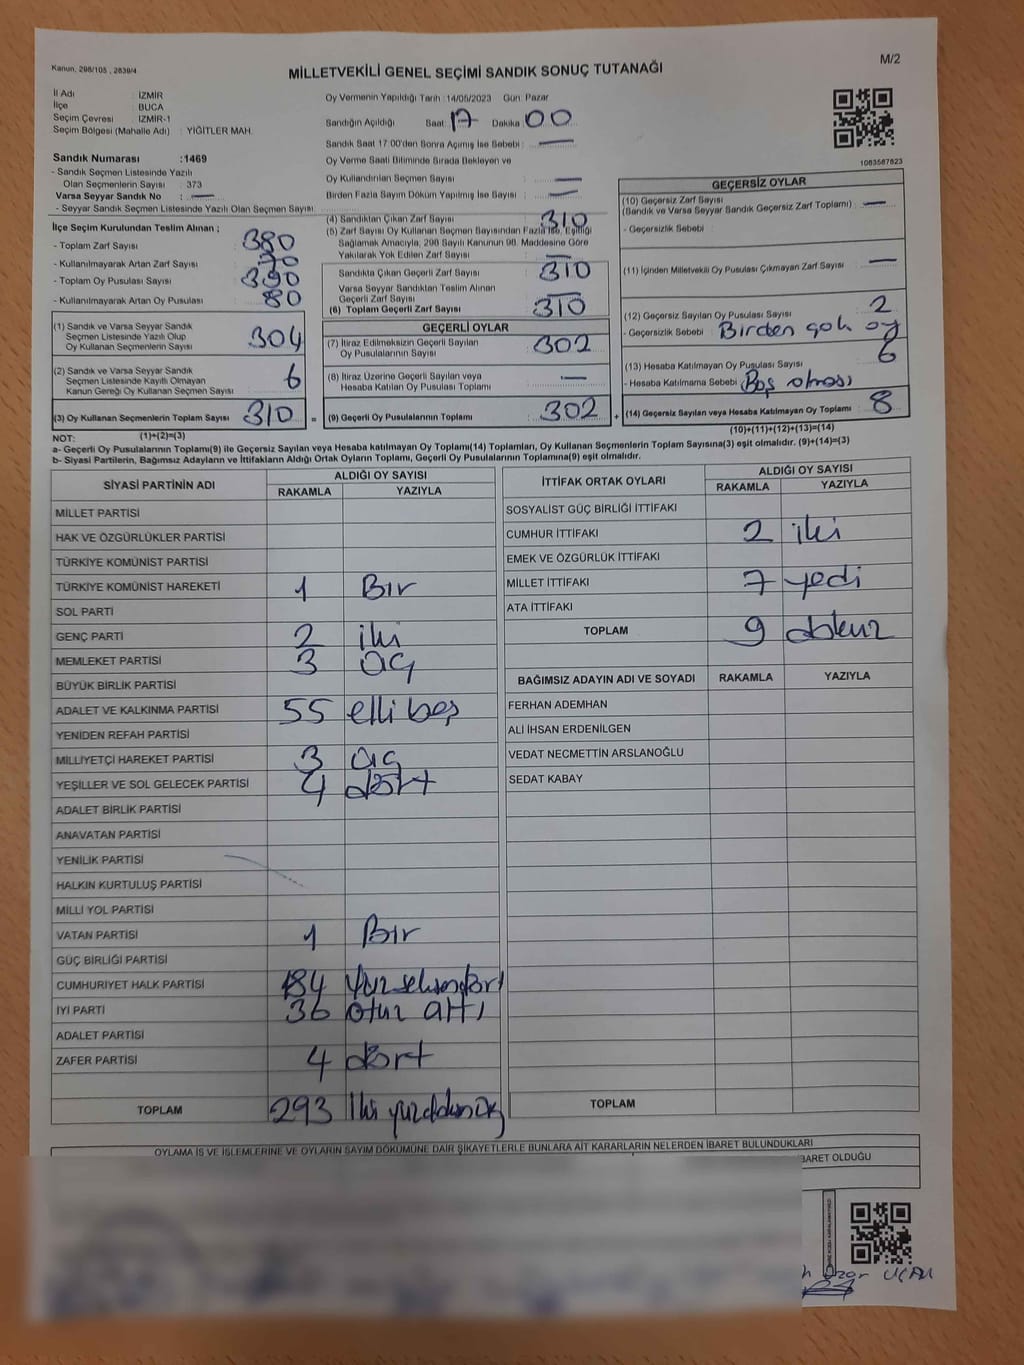 M/2
Kanun, 298/105 , 2839/4
MİLLETVEKİLİ GENEL SEÇİMİ SANDIK SONUÇ TUTANAĞI
İl Adı : İZMİR
İlçe : BUCA
Seçim Çevresi : İZMİR-1
Seçim Bölgesi (Mahalle Adı) : YİĞİTLER MAH.
Oy Vermenin Yapıldığı Tarih :14/05/2023 Gün: Pazar
Sandığın Açıldığı Saat: 17 Dakika : 00
Sandık Saat 17:00'den Sonra Açımış İse Sebebi : —
Oy Verme Saati Bitiminde Sırada Bekleyen ve
Oy Kullandırılan Seçmen Sayısı : —
Birden Fazla Sayım Döküm Yapılmış İse Sayısı : —
1083587823
Sandık Numarası :1469
- Sandık Seçmen Listesinde Yazılı
Olan Seçmenlerin Sayısı : 373
Varsa Seyyar Sandık No : —
- Seyyar Sandık Seçmen Listesinde Yazılı Olan Seçmen Sayısı:
İlçe Seçim Kurulundan Teslim Alınan ;
- Toplam Zarf Sayısı : 380
- Kullanılmayarak Artan Zarf Sayısı : 70
- Toplam Oy Pusulası Sayısı : 390
- Kullanılmayarak Artan Oy Pusulası : 80
(1) Sandık ve Varsa Seyyar Sandık
Seçmen Listesinde Yazılı Olup
Oy Kullanan Seçmenlerin Sayısı : 304
(2) Sandık ve Varsa Seyyar Sandık
Seçmen Listesinde Kayıtlı Olmayan
Kanun Gereği Oy Kullanan Seçmen Sayısı : 6
(3) Oy Kullanan Seçmenlerin Toplam Sayısı : 310 =
(4) Sandıktan Çıkan Zarf Sayısı : 310
(5) Zarf Sayısı Oy Kullanan Seçmen Sayısından Fazla İse, Eşitliği
Sağlamak Amacıyla, 298 Sayılı Kanunun 98. Maddesine Göre
Yakılarak Yok Edilen Zarf Sayısı : —
Sandıkta Çıkan Geçerli Zarf Sayısı : 310
Varsa Seyyar Sandıktan Teslim Alınan
Geçerli Zarf Sayısı : —
(6) Toplam Geçerli Zarf Sayısı : 310
GEÇERLİ OYLAR
(7) İtiraz Edilmeksizin Geçerli Sayılan
Oy Pusulalarının Sayısı : 302
(8) İtiraz Üzerine Geçerli Sayılan veya
Hesaba Katılan Oy Pusulası Toplamı : —
(9) Geçerli Oy Pusulalarının Toplamı : 302 +
GEÇERSİZ OYLAR
(10) Geçersiz Zarf Sayısı
(Sandık ve Varsa Seyyar Sandık Geçersiz Zarf Toplamı) : —
- Geçersizlik Sebebi :
(11) İçinden Milletvekili Oy Pusulası Çıkmayan Zarf Sayısı : —
(12) Geçersiz Sayılan Oy Pusulası Sayısı : 2
- Geçersizlik Sebebi : Birden çok oy
(13) Hesaba Katılmayan Oy Pusulası Sayısı : 6
- Hesaba Katılmama Sebebi : Boş olması
(14) Geçersiz Sayılan veya Hesaba Katılmayan Oy Toplamı : 8
NOT: (1)+(2)=(3) (10)+(11)+(12)+(13)=(14)
a- Geçerli Oy Pusulalarının Toplamı(9) ile Geçersiz Sayılan veya Hesaba katılmayan Oy Toplamı(14) Toplamları, Oy Kullanan Seçmenlerin Toplam Sayısına(3) eşit olmalıdır. (9)+(14)=(3)
b- Siyasi Partilerin, Bağımsız Adayların ve İttifakların Aldığı Ortak Oyların Toplamı, Geçerli Oy Pusulalarının Toplamına(9) eşit olmalıdır.
SİYASİ PARTİNİN ADI ALDIĞI OY SAYISI
RAKAMLA YAZIYLA
MİLLET PARTİSİ
HAK VE ÖZGÜRLÜKLER PARTİSİ
TÜRKİYE KOMÜNİST PARTİSİ
TÜRKİYE KOMÜNİST HAREKETİ 1 Bir
SOL PARTİ
GENÇ PARTİ 2 iki
MEMLEKET PARTİSİ 3 üç
BÜYÜK BİRLİK PARTİSİ
ADALET VE KALKINMA PARTİSİ 55 elli beş
YENİDEN REFAH PARTİSİ
MİLLİYETÇİ HAREKET PARTİSİ 3 üç
YEŞİLLER VE SOL GELECEK PARTİSİ 4 dört
ADALET BİRLİK PARTİSİ
ANAVATAN PARTİSİ
YENİLİK PARTİSİ
HALKIN KURTULUŞ PARTİSİ
MİLLİ YOL PARTİSİ
VATAN PARTİSİ 1 Bir
GÜÇ BİRLİĞİ PARTİSİ
CUMHURİYET HALK PARTİSİ 184 Yüz seksen dört
İYİ PARTİ 36 otuz altı
ADALET PARTİSİ
ZAFER PARTİSİ 4 dört
TOPLAM 293 İki yüz doksan üç
İTTİFAK ORTAK OYLARI ALDIĞI OY SAYISI
RAKAMLA YAZIYLA
SOSYALİST GÜÇ BİRLİĞİ İTTİFAKI
CUMHUR İTTİFAKI 2 iki
EMEK VE ÖZGÜRLÜK İTTİFAKI
MİLLET İTTİFAKI 7 yedi
ATA İTTİFAKI
TOPLAM 9 dokuz
BAĞIMSIZ ADAYIN ADI VE SOYADI RAKAMLA YAZIYLA
FERHAN ADEMHAN
ALİ İHSAN ERDENİLGEN
VEDAT NECMETTİN ARSLANOĞLU
SEDAT KABAY
TOPLAM
OYLAMA İŞ VE İŞLEMLERİNE VE OYLARIN SAYIM DÖKÜMÜNE DAİR ŞİKAYETLERLE BUNLARA AİT KARARLARIN NELERDEN İBARET BULUNDUKLARI
BARET OLDUĞU